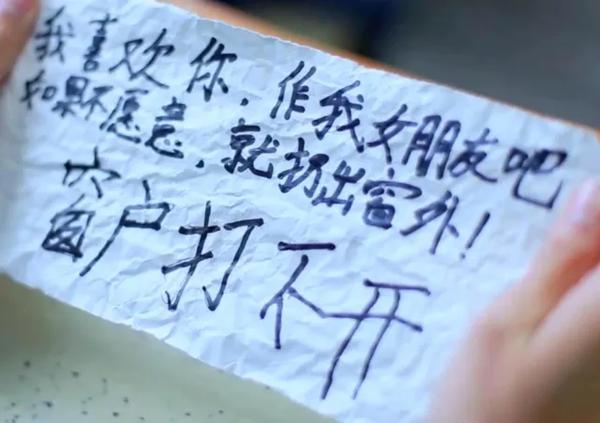 我喜欢你，作我女朋友吧
如果不愿意，就扔出窗外！
窗户打不开